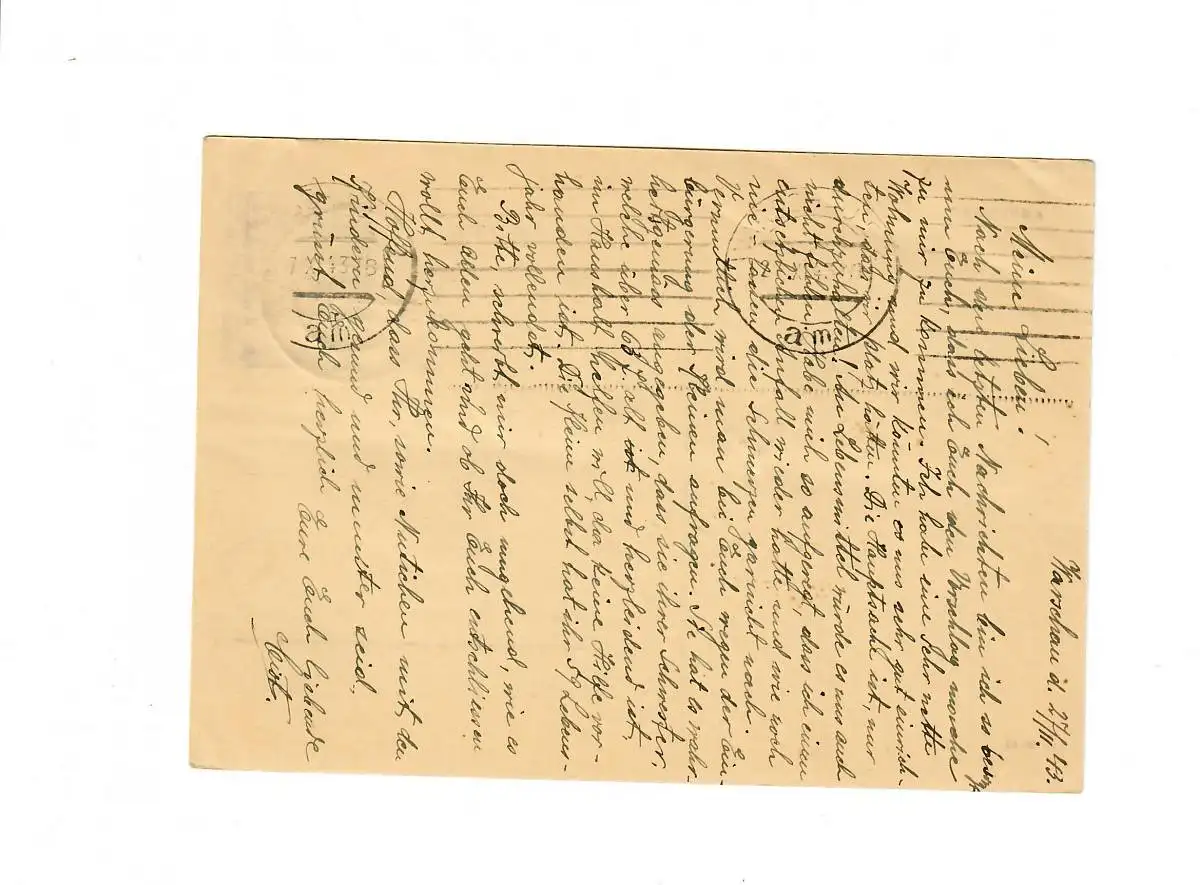 Warschau d. 27/11. 43.
Meine Lieben!
Nach den letzten Nachrichten bin ich so besorgt
um Euch, dass ich Euch den Vorschlag mache
zu mir zu kommen. Ich habe eine sehr nette
Wohnung und wir könnten es uns sehr gut einrich-
ten, dass wir platz hätten. Die Hauptsache ist, nur
durchzuhalten! An Lebensmittel würde es uns auch
nicht fehlen. Habe mich so aufgeregt, dass ich einen
entsetzlichen Anfall wieder hatte und wie noch
nie - lassen die Schmerzen garnicht nach.
Vermutlich wird man bei Euch wegen der Ein-
bürgerung der Kleinen anfragen. Sie hat es wahr-
heitsgemäs angegeben, dass sie ihrer Schwester,
welche über 63 J alt ist und herzleidend ist,
im Haushalt helfen will, da keine Hilfe vor-
handen ist. Die Kleine selbst hat ihr Lebens-
jahr vollendet.
Bitte, schreibt mir doch umgehend, wie es
Euch Allen geht und ob Ihr Euch entschliessen
wollt herzukommen.
Hoffend, dass Ihr, sowie Mutichen mit den
Kindern gesund und munter seid,
grüsst Euch herzlich Eure Euch liebende
7.12.43-8
am
am